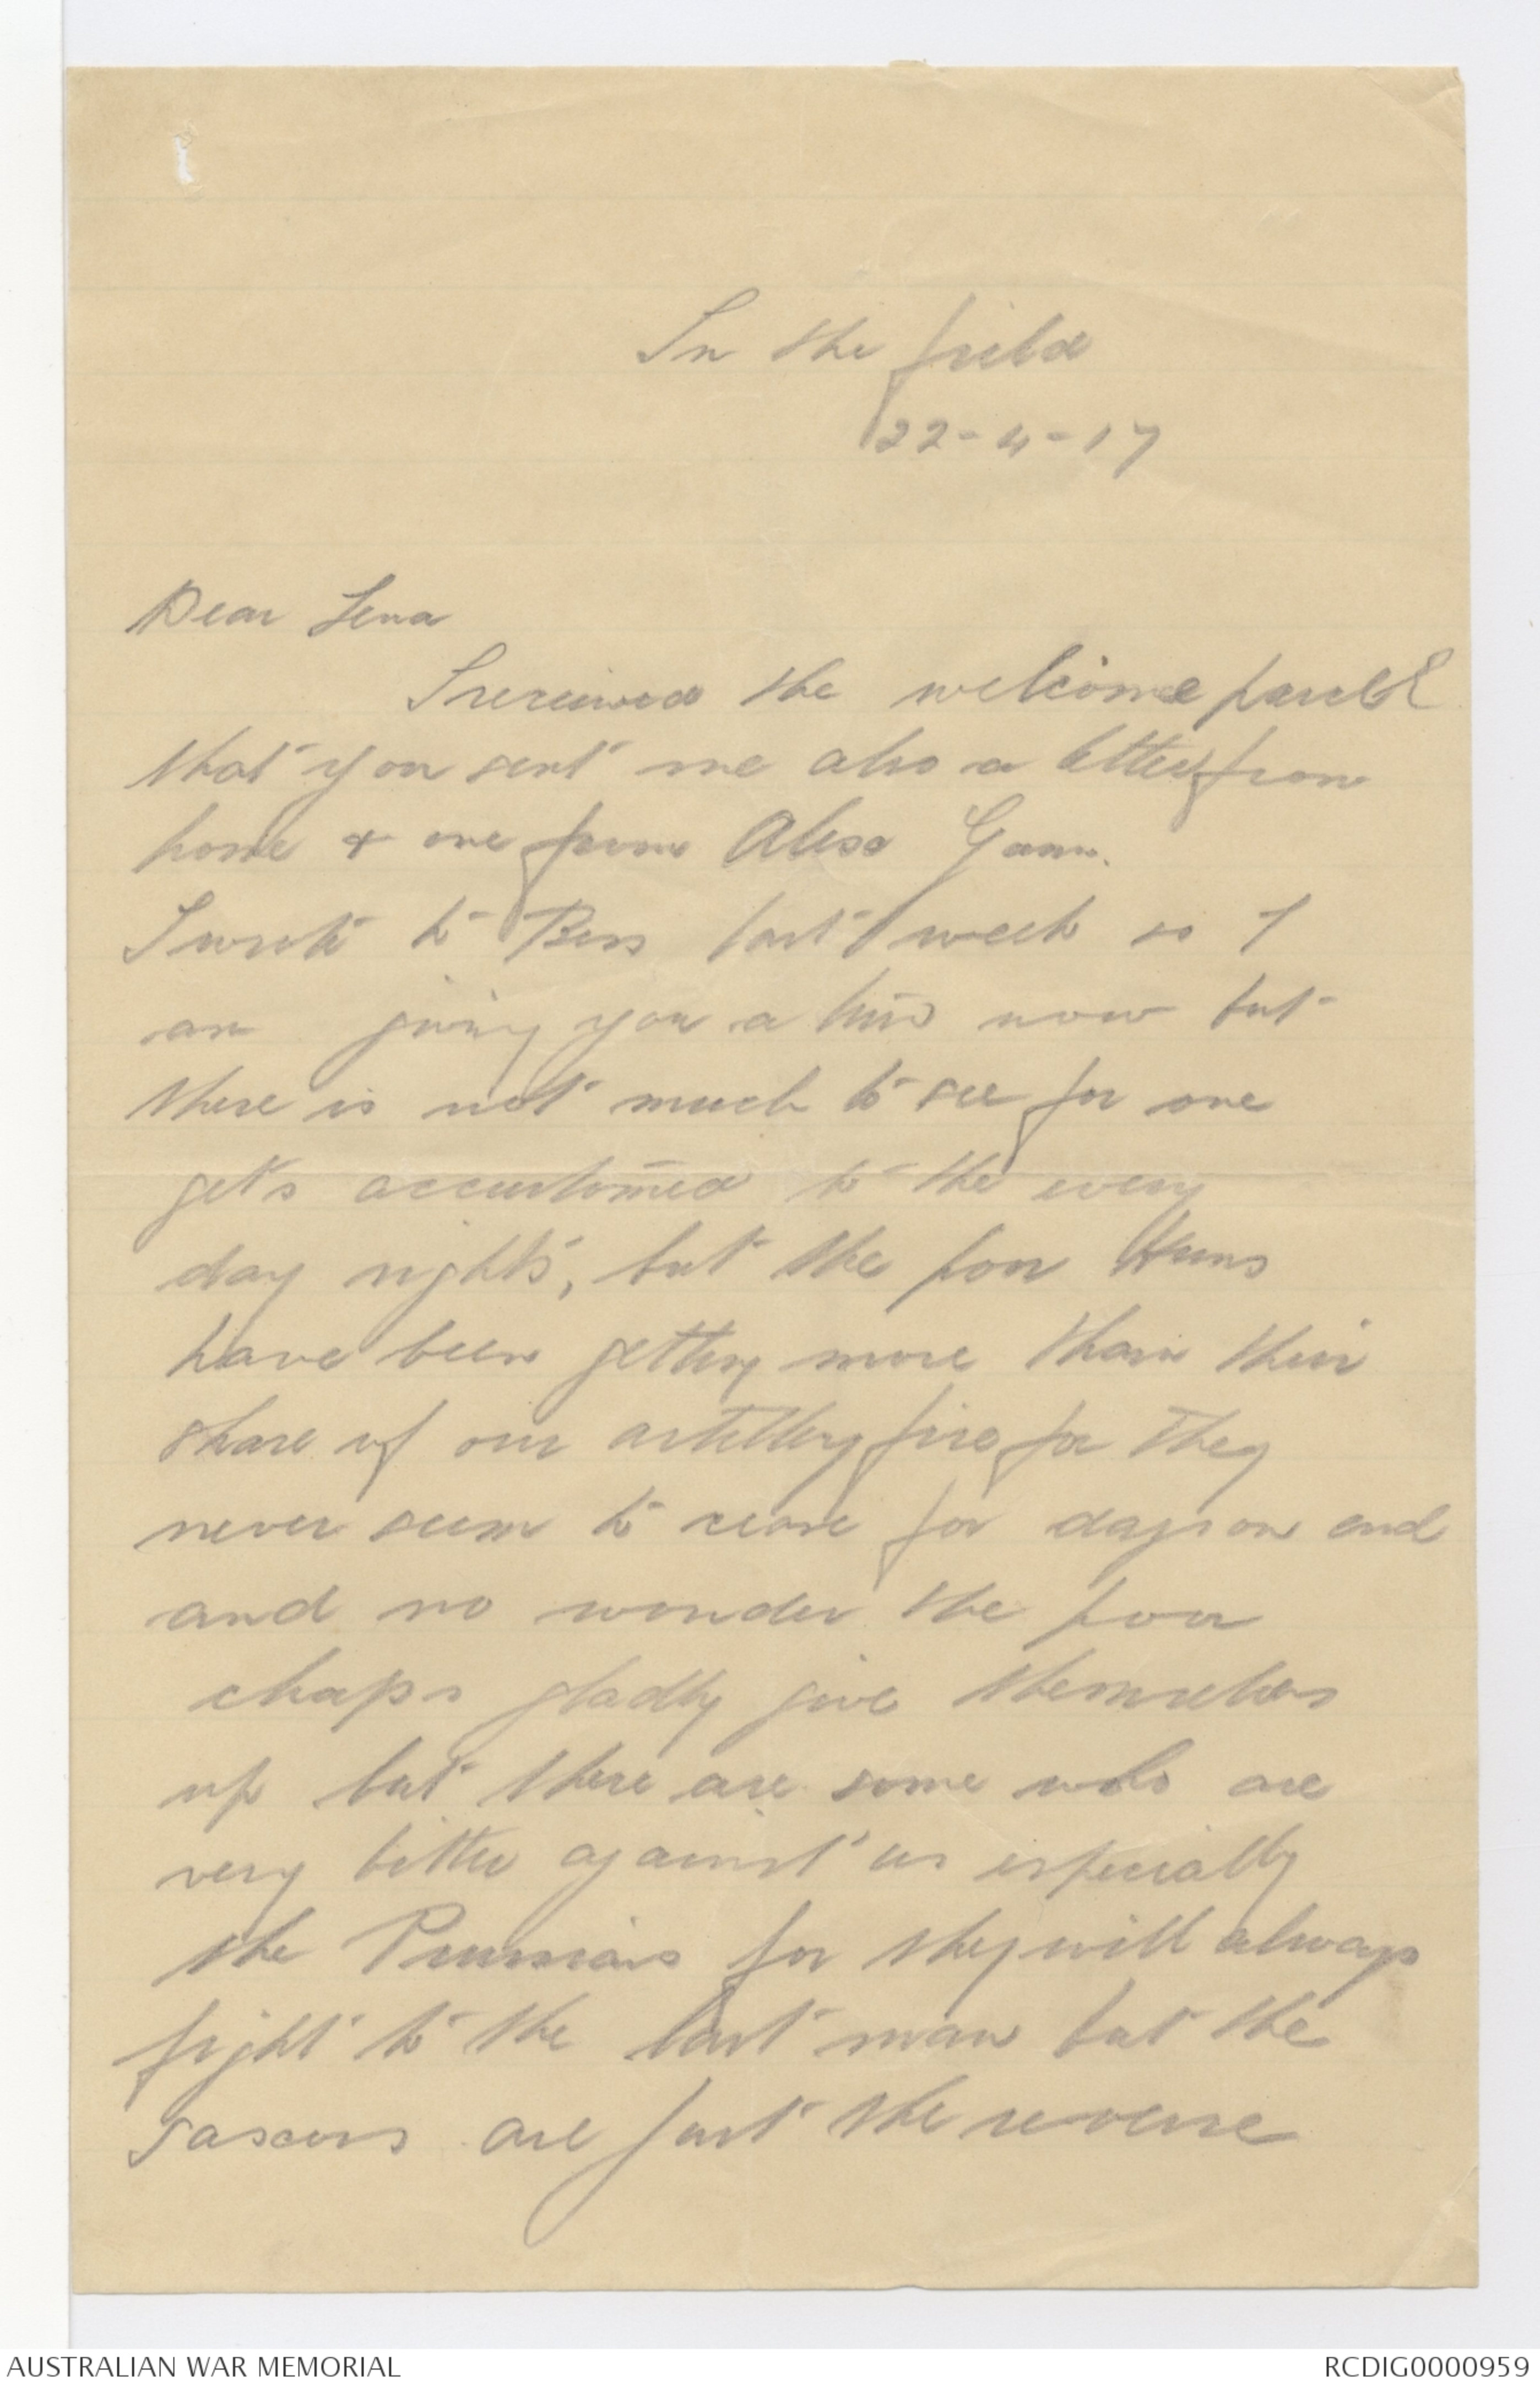 In the field
22-4-17
Dear Lena
I received the welcome parcel
that you sent me also a letter from
home & one from Gunn.
I wrote to Bess last week so I
am giving you a turn now but
there is not much to see for one
gets accustomed to the every
day sights, but the poor Huns
have been getting more than their
share of our artillery fire for they
never seem to cease for days on end
and no wonder the poor
chaps gladly give themselves
up but there are some who are
very bitter against us especially
the Prussians for they will always
fight to the last man but the
are just the reverse
AUSTRALIAN WAR MEMORIAL
RCDIG0000959